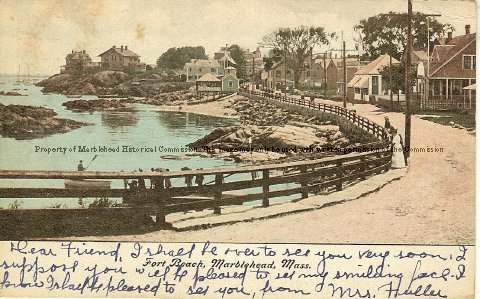 Property of Marblehead Historical Commission. This image may only be used with written permission of the Commission
Fort Beach, Marblehead, Mass.
Dear Friend, I shall be over to see you very soon. I
suppose you will be pleased to see my smiling face. I
know I shall be pleased to see you, from Mrs. Fuller